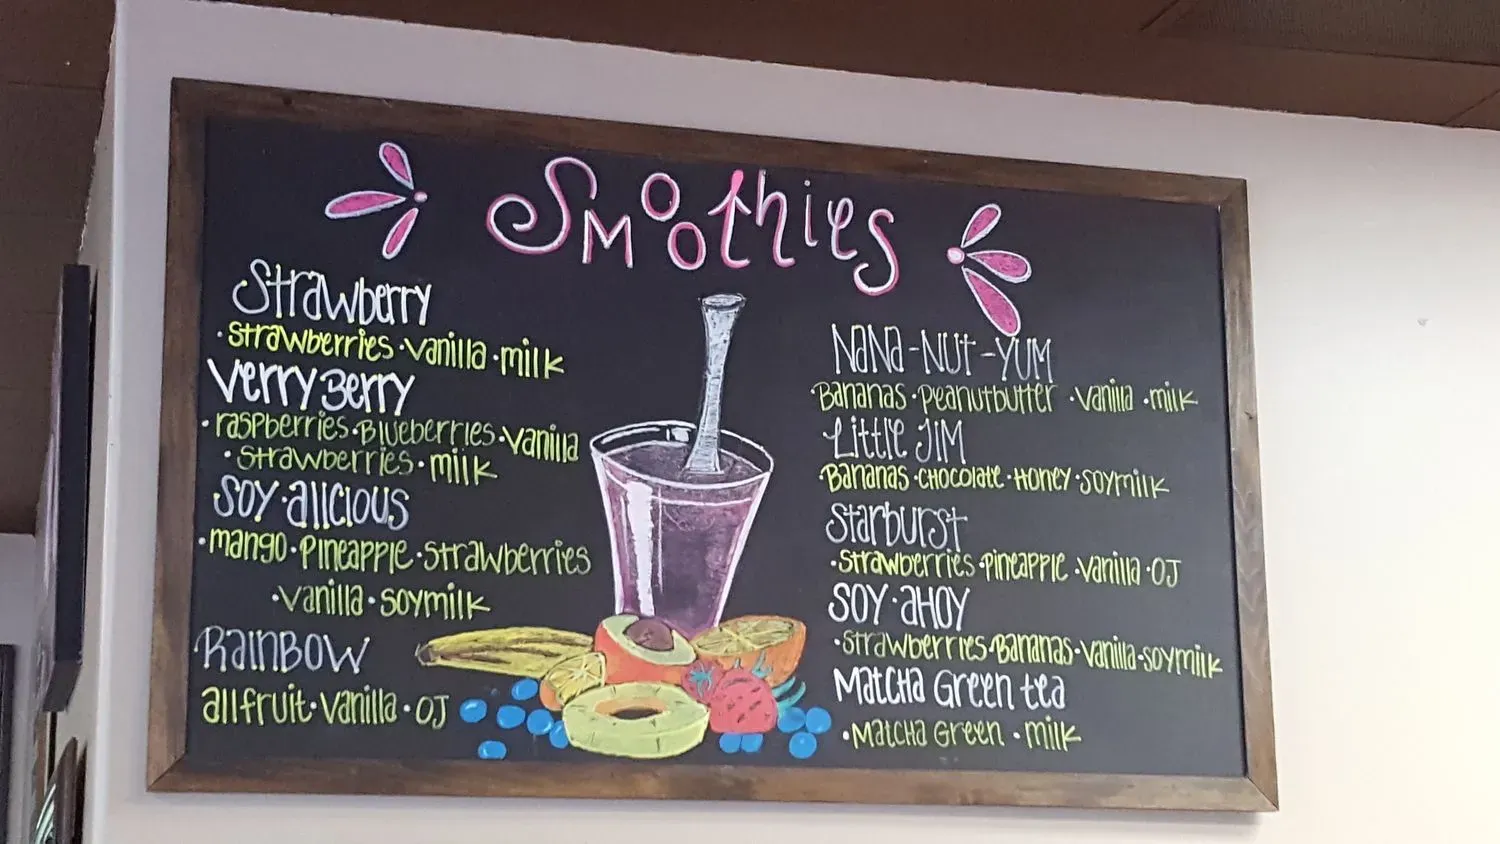 Smoothies
Strawberry
·Strawberries·Vanilla·milk
Verry Berry
·raspberries·Blueberries·vanilla
·Strawberries·milk
Soy·alicious
·mango·Pineapple·Strawberries
·Vanilla·Soymilk
Rainbow
all fruit·Vanilla·OJ
Nana-Nut-Yum
·Bananas·Peanutbutter·Vanilla·milk
Little Jim
·Bananas·Chocolate·Honey·Soymilk
Starburst
·Strawberries·Pineapple·Vanilla·OJ
Soy·Ahoy
·Strawberries·Bananas·Vanilla·Soymilk
Matcha Green tea
·Matcha Green·milk